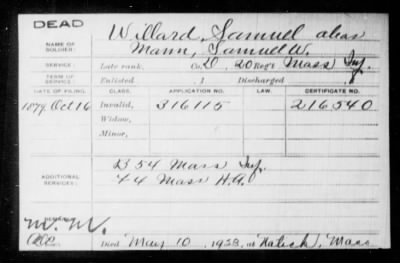 DEAD
Willard, Samuel alias
NAME OF SOLDIER: Mann, Samuel W.
SERVICE: Late rank, Co. D, 20 Reg't Mass Inf.
TERM OF SERVICE: Enlisted , 1 Discharged , 1
DATE OF FILING. CLASS. APPLICATION NO. LAW. CERTIFICATE NO.
1879, Oct 16 Invalid, 316115 216540
Widow,
Minor,
B 54 Mass Inf.
ADDITIONAL SERVICES: 44 Mass H.A.
REMARKS:
Died May 10, 1923, at Natick, Mass